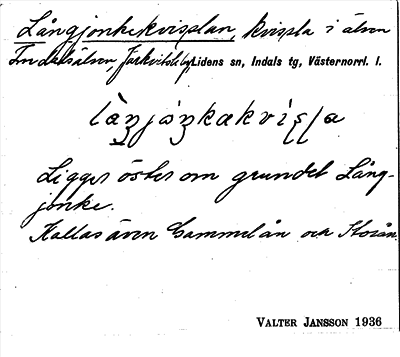 Långjonkekvisslan, kvissla i älven
Indalsälven, Lidens sn, Indals tg, Västernorrl. l.
Ligger öster om grundet Lång-
jonke.
Kallas även Gammelån och Storån.
VALTER JANSSON 1936